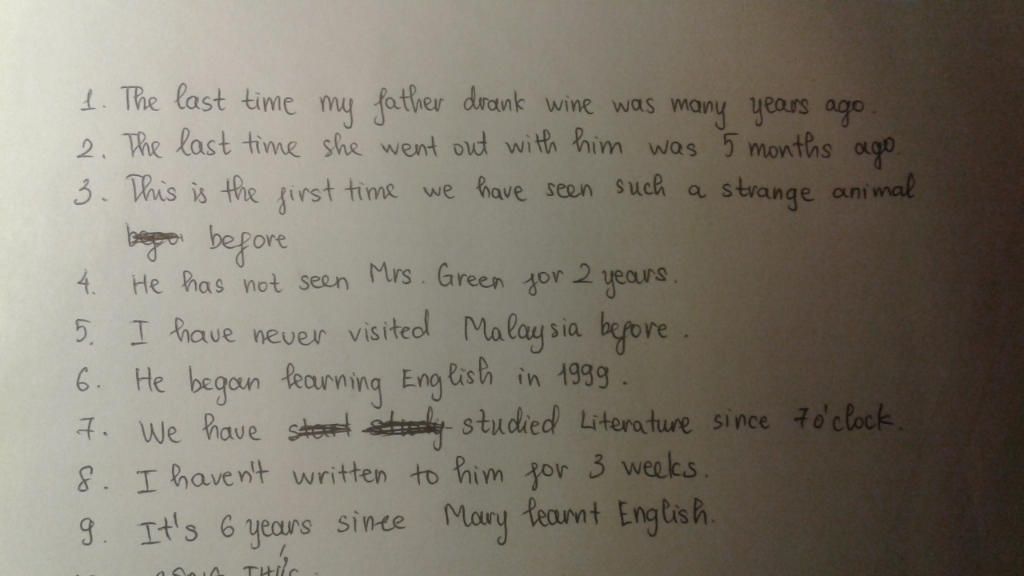 1. The last time my father drank wine was many years ago.
2. The last time she went out with him was 5 months ago.
3. This is the first time we have seen such a strange animal
before
4. He has not seen Mrs. Green for 2 years.
5. I have never visited Malaysia before.
6. He began learning English in 1999.
7. We have studied Literature since 7 o'clock.
8. I haven't written to him for 3 weeks.
9. It's 6 years since Mary learnt English.